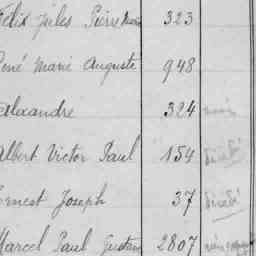 Félix Jules Pierre Marie 323
René Marie Auguste 948
Alexandre 324
Albert Victor Paul 154 Décédé
Ernest Joseph 37 Décédé
Marcel Paul Gustave 2807